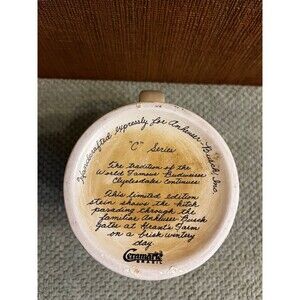 Handcrafted expressly for Anheuser-Busch, Inc.
"C" Series
The tradition of the
World Famous Budweiser
Clydesdales Continues
This limited edition
stein shows the hitch
parading through the
familiar Anheuser-Busch
gates at Grant's Farm
on a brisk wintery
day.
Ceramarte